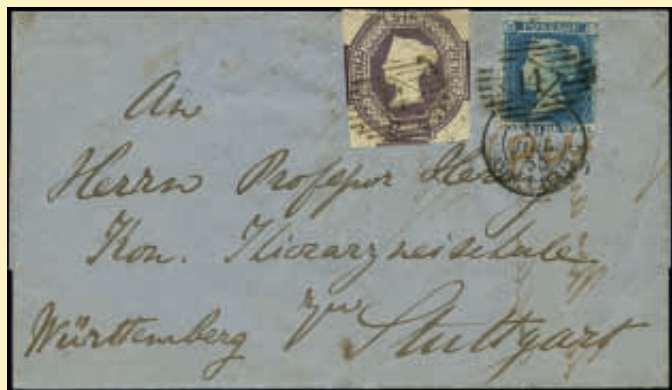 POSTAGE
An
Herrn Professor
Kön. Thierarzneischule
zu
Württemberg Stuttgart